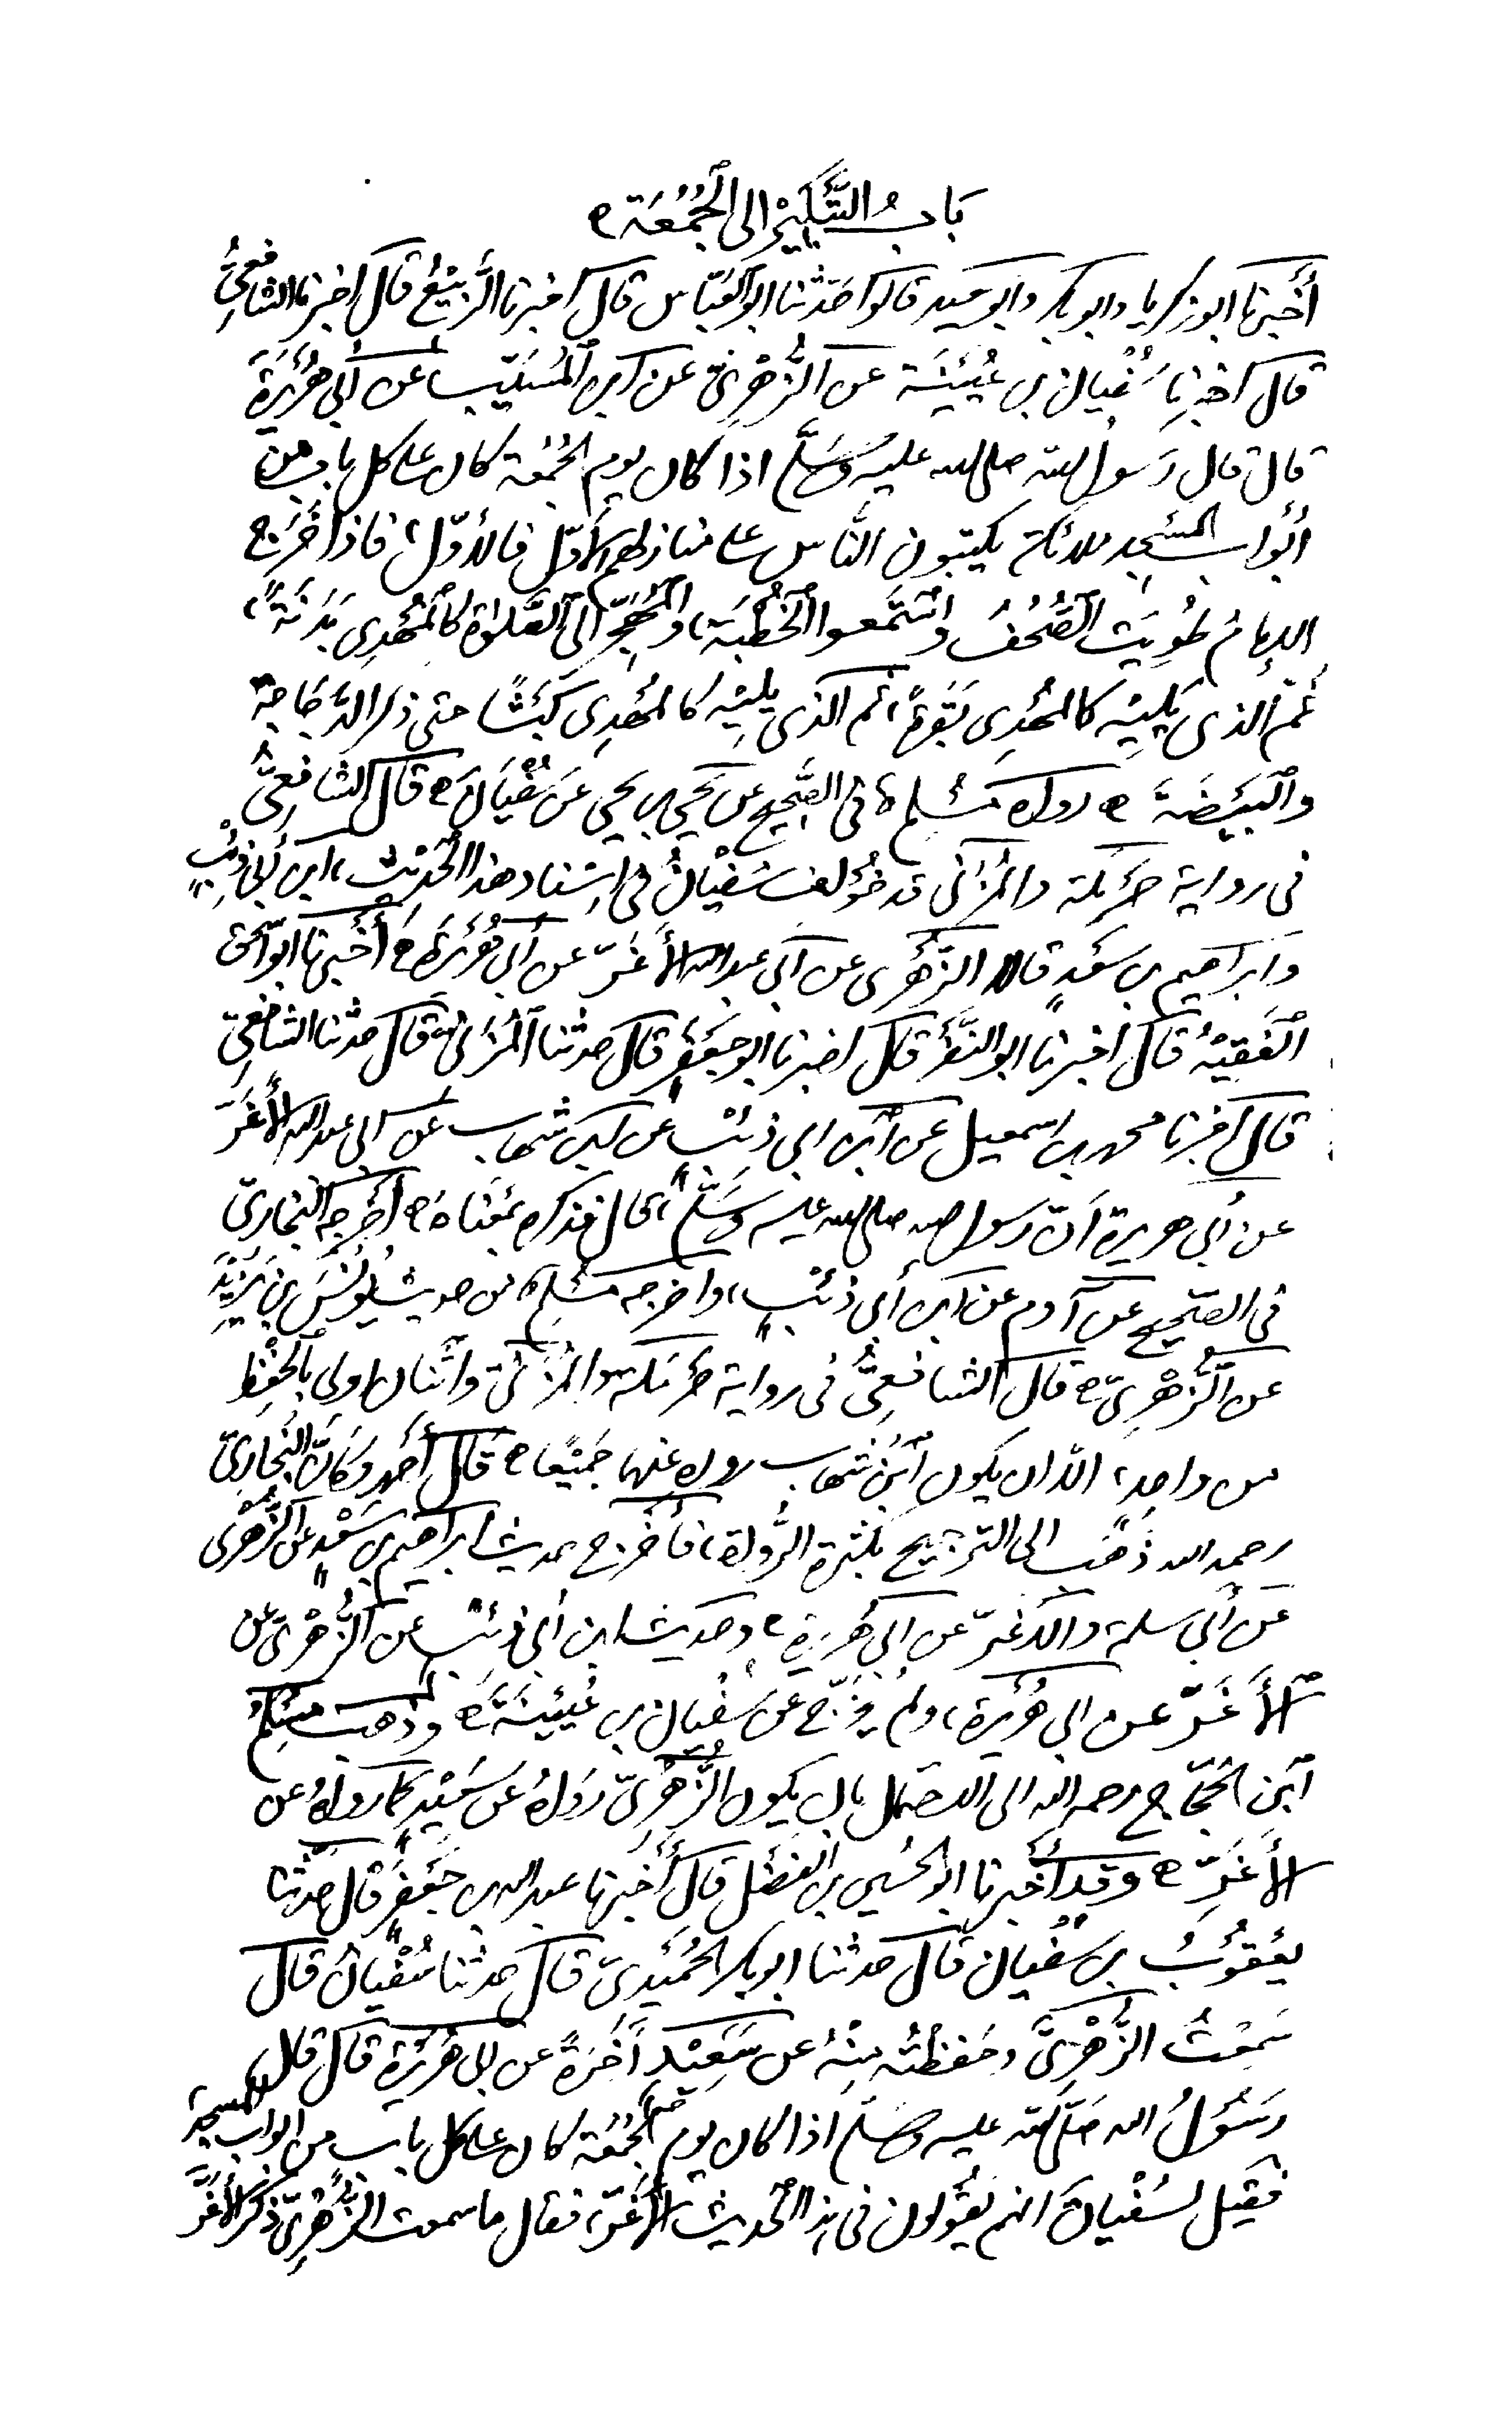 بَابُ التَّبْكِيْرِ الى الْجُمُعَة
أَخْبرنا ابو زكريا وابو بكر وابو سعيد قالوا حَدّثنا ابو الْعَبّاس قال اخبرنا الرَّبِيْعُ قال اخبرنا الشافِعِيُّ
قال اخبرنا سُفْيان بن عُيَيْنَة عن الزُّهْرِيّ عن ابن الْمُسَيّب عن أبي هُرَيْرَةَ
قال قال رَسولُ الله صلى الله عليه وَسَلَّم اذا كان يوم الجُمُعَة كان على كل باب من
أبْوَاب المَسْجِد ملائكة يكتبون النّاس على منازلهم الأوّل فالأوّل، فاذا خَرَج
الإمامُ طُوِيَت الصُّحُفُ واسْتَمَعوا الْخُطْبَة، والمُهَجِّر الى الصَّلوة كالْمُهْدِي بَدَنَةً،
ثم الذى يَلِيْه كالمُهْدِى بَقَرةً، ثم الذى يلِيْه كالمُهْدِى كَبْشًا حتى ذكر الدَّجَاجَة
والْبَيْضَةَ رواه مُسْلِم في الصَّحِيح عن يَحْيى بن يحيى عَن سُفْيَانَ قال الشافِعِيُّ
في رواية حَرْمَلة والمُزَنى قد خُوْلِفَ سُفْيانُ في اسْناد هذا الحَدِيْث، ابن أبي ذِئْبٍ
وابراهيم بن سَعْدٍ قالا الزُّهْرِى عن ابى عبد الله الأَغَرّ عن أبي هُرَيْرَة أَخْبرنا ابو اسحق
الْفَقِيْهُ قال اخبرنا ابو النَّضْر قال اخبرنا ابو جَعْفَرٍ قال حدثنا الْمُزَنِيّ قال حدثنا الشافِعِيّ
قال اخبرنا محمد بن اسمعيل عن ابن ابى ذِئْب عن ابن شهاب عن ابى عبد الله الأَغَرّ
عن أبى هريرة أنّ رسول الله صلى الله عليه وَسَلَّم، قال فذكره بمَعْنَاه أَخْرجه البُخارىّ
في الصَّحِيح عن آدم عن ابن أبى ذِئْبٍ، واخرجه مُسْلِم من حديث يُوْنُسَ بن يَزِيْدَ
عن الزُّهْرِىّ قال الشافِعِيُّ في رواية حَرْمَلَة والمُزَنيّ واثْنان اولى بالحِفْظ
من واحِد، الّا ان يكون ابْنُ شهاب رواه عنهما جَمِيْعًا قال أحْمد وكانَ البُخَاريّ
رحمه الله ذَهَبَ الى التّرجيح بكثرة الرُّواة، فأَخْرَج حديث ابراهيم بن سَعْدٍ عن الزُّهْرى
عَن أبى سلمة والاغرّ عن ابى هُرَيرة، وحديث ابن أبى ذِئْب عن الزُّهْرىّ عن
الأَغَرّ عن ابى هُرَيْرة، ولم يُخَرّج عَن سُفْيان بن عُيَيْنَةَ وذَهَب مُسْلِم
ابْن الحَجّاج رحمه الله الى الاحتمال بان يكون الزُّهْرِيّ رَواهُ عَن سَعِيْدٍ كما رواهُ عن
الأَغَرّ وقد أَخْبرنا ابو الحُسَين بن الفَضْل قال أَخْبرنا عبد الله بن جَعْفَر قال حدثنا
يَعْقُوْبُ بن سُفْيان قال حدثنا ابو بكر الحُمَيْدىّ قال حدثنا سُفْيانُ قال
سَمِعْتُ الزُّهْرِيّ وحَفظْتُه مِنْهُ عن سَعِيْدٍ أخْبَرَهُ عن ابى هُرَيْرَة قال قال
رَسُوْلُ الله صَلّى الله عليه وسَلّم اذا كان يوم الجُمُعَة كان على كل باب من ابواب المسجد
فقيل لسُفْيانَ انهم يَقُوْلون في هذا الحَديث الأَغَرّ، فقال ما سمعت الزُّهْرِيّ ذَكَر الأَغَرّ